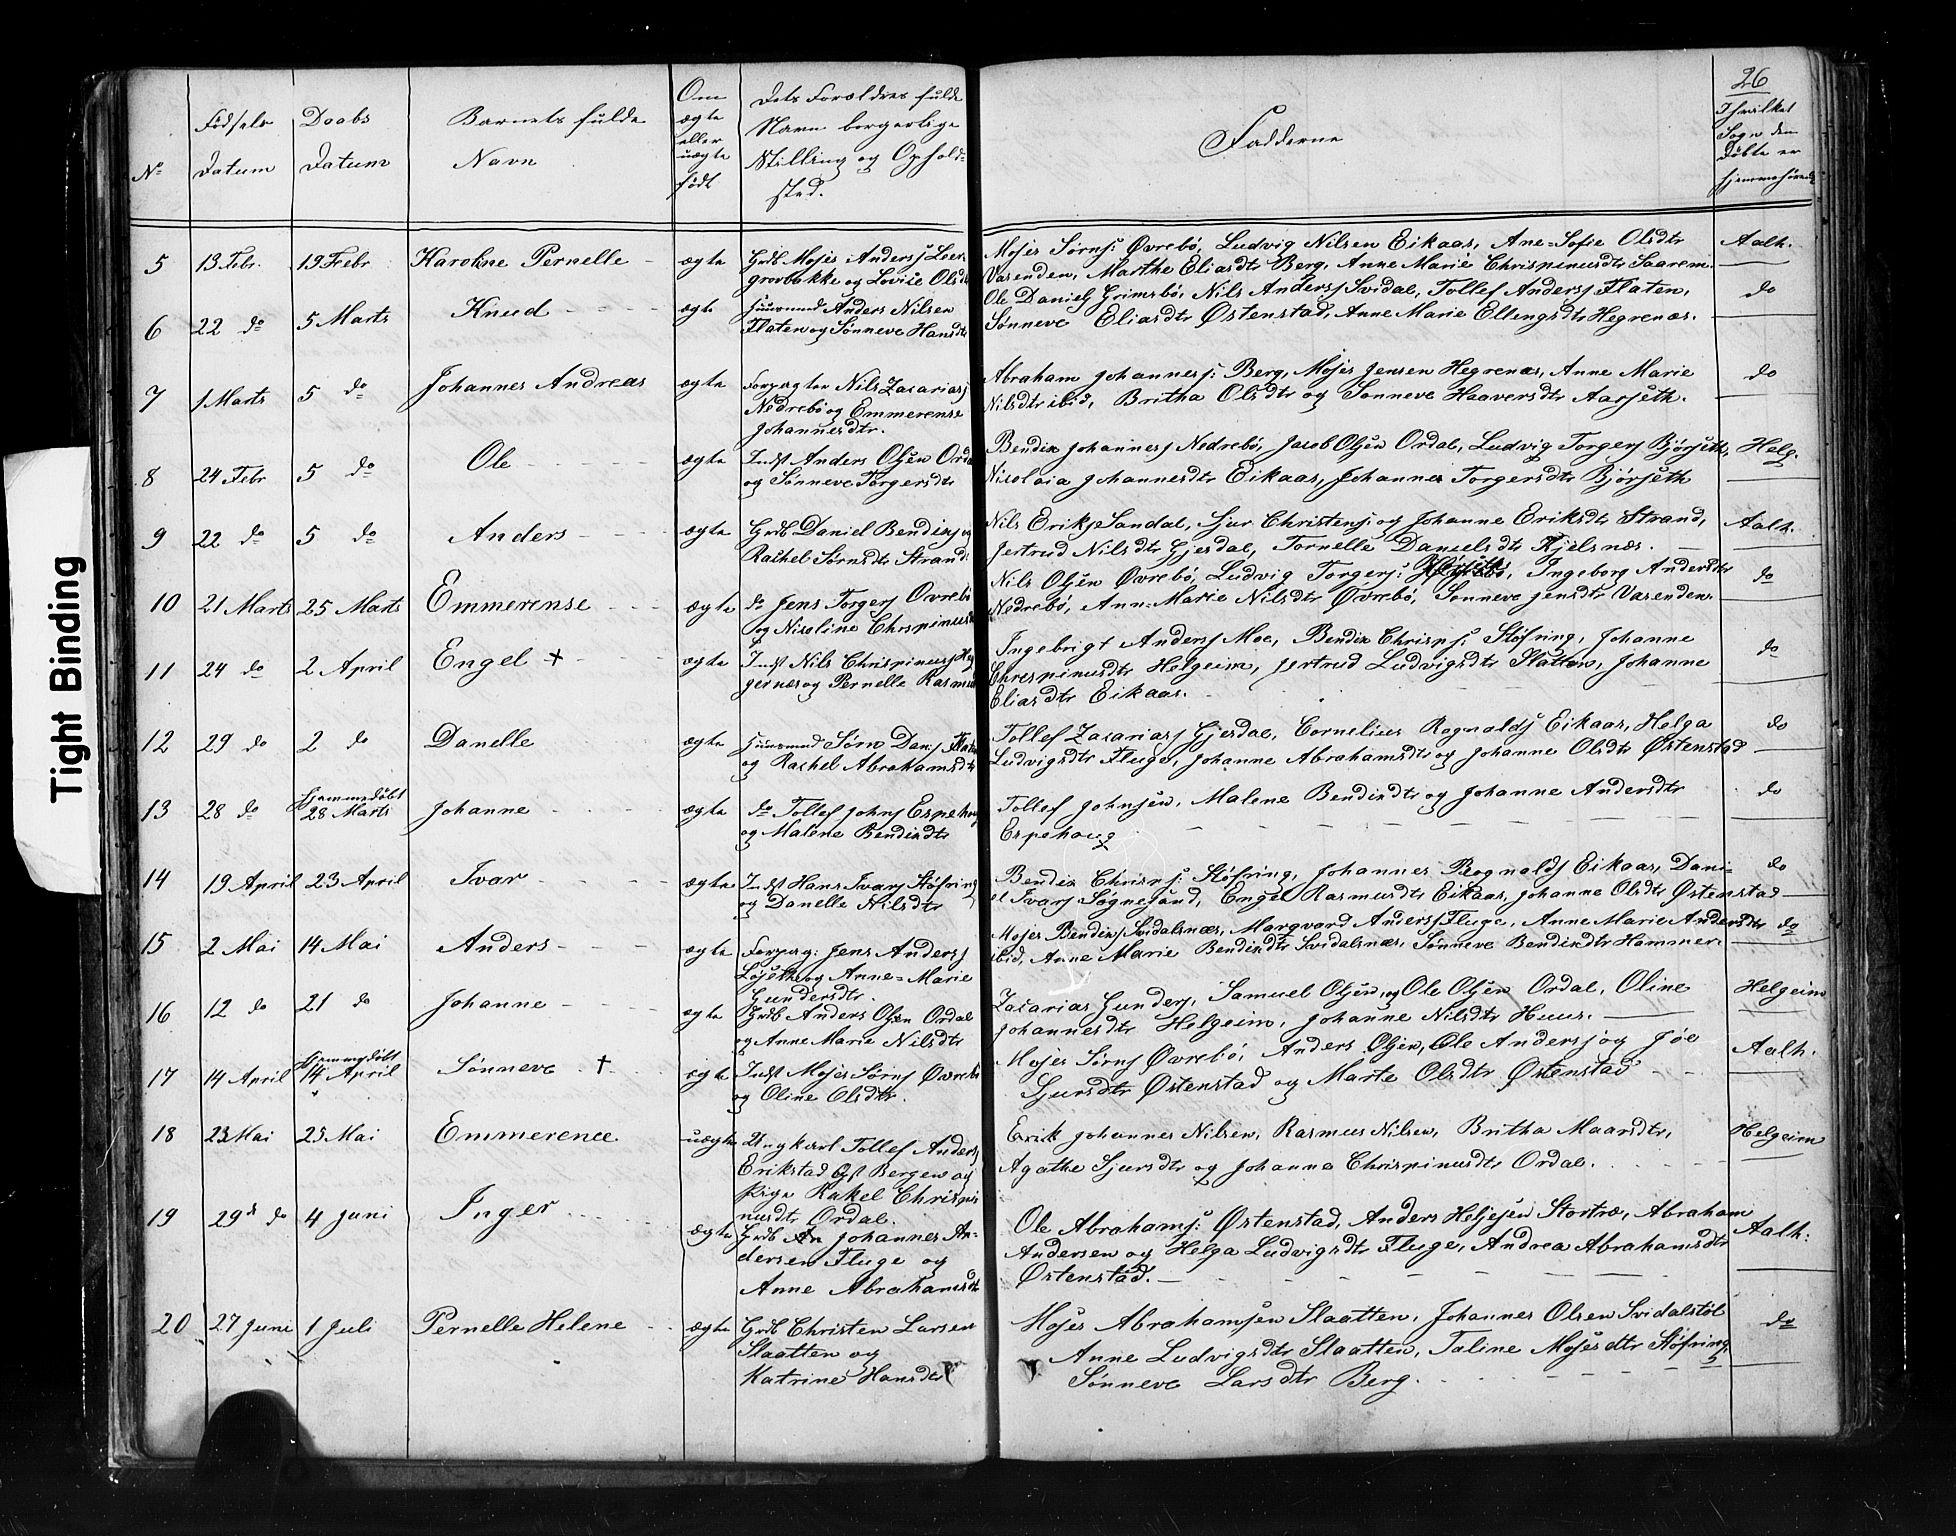 26
Tight Binding
No
Fødsels Datum
Daabs Datum
Barnets fulde Navn
Om ægte eller uægte født
Dets Forældres fulde Navn borgerlige Stilling og Opholdsted.
Fadderne
I hvilket Sogn den Døbte er hjemmehørende
5 13 Febr. 19 Febr Karoline Pernelle - ægte
Grdb Mojes Andersj Leer-
grovbakke og Lovise Olsdt
Mojes Sørnsj Øvrebö, Ludvig Nilsen Eikaas, Ane-Sofie Olsdtr
Vasenden, Marthe Eliasdtr Berg, Anne Marie Chrispinusdtr Saarem.
Aalh.
6 22 do 5 Marts Knud - - - ægte
Huusmand Anders Nilsen
Flaten og Sönneve Hansdtr
Ole Danielsj Grimsbö, Nils Andersj Svidal, Tollef Andersj Flaten,
Sönneve Eliasdtr Østenstad, Anne Marie Ellengsdtr Hegrenæs.
do
7 1 Marts 5 do Johannes Andreas ægte
Forpagter Nils Zacariasj
Nedrebö og Emmerense
Johannesdtr.
Abraham Johannesj: Berg, Mojes Jensen Hegrenæs, Anne Marie
Nilsdtr ibid, Britha Olsdtr og Sönneve Haaversdtr Aarseth.
do
8 24 Febr 5 do Ole - - - ægte
Indst Anders Olsen Ordal
og Sönneve Torgersdtr
Bendix Johannesj Nedrebö, Jacob Olsen Ordal, Ludvig Torgersj Bjørseth,
Nicolaia Johannesdtr Eikaas, Johanna Torgersdtr Bjørseth
Helg.
9 22 do 5 do Anders - - - ægte
Grdb Daniel Bendixsj og
Rachel Sørnsdtr Strand
Nils Eriksj Sandal, Sjur Christensj og Johanne Eriksdtr Strand,
Jertrud Nilsdtr Gjesdal, Pernelle Danielsdtr Kjelsnæs.
Aalh.
10 21 Marts 25 Marts Emmerense - - - ægte
do Jens Torgersj Øvrebö
og Nicoline Chrispinusdt
Nils Olsen Øvrebö, Ludvig Torgersj: Ingeborg Andersdtr
Nedrebö, Ann-Marie Nilsdtr Øvrebö, Sönneve Jensdtr Vasenden.
do
11 24 do 2 April Engel + - - ægte
Indst Nils Chrispinusj
og Pernelle Rasmusd
Ingebrigt Andersj Moe, Bendix Chrispsj: Støfring, Johanne
Chrispinusdtr Helgeim, Jertrud Ludvigsdtr Slatten, Johanne
Eliasdtr Eikaas.
do
12 29 do 2 do Danelle ægte
Huusmand Sørn Dansj Flaten
og Rachel Abrahamsdtr
Tollef Zacariasj Gjesdal, Cornelius Rognaldsj Eikaas, Helga
Ludvigsdtr Fluge, Johanne Abrahamsdtr og Johanne Olsdtr Østenstad
do
13 28 do Hjemmedøbt 28 Marts Johanne - ægte
do Tollef Johnsj Espehoug
og Malene Bendixdtr
Tollef Johnsen, Malene Bendixdtr og Johanne Andersdtr
Espehoug
do
14 19 April 23 April Ivar - - - ægte
Indst Hans Ivarsj Støfring
og Danelle Nilsdtr
Bendix Chrispsj Støfring, Johannes Rognaldsj Eikaas, Dani-
el Ivarsj Sognesand, Engel Rasmusdtr Eikaas, Johanne Olsdtr Østenstad
do
15 2 Mai 14 Mai Anders - - - ægte
Forpag: Jens Andersj
Løseth og Anne-Marie
Gundersdtr.
Mojes Bendixsj Svidalsnæs, Marqvard Andersj Fluge, Anne Marie Andersdtr
ibid, Anne Marie Bendixdtr Svidalsnæs, Sönneve Bendixdtr Hammer.
do
16 12 do 21 do Johanne - - - ægte
Grdb Anders Olsen Ordal
og Anne Marie Nilsdtr
Zacarias Gundersj, Samuel Olsen, og Ole Olsen Ordal, Oline
Johannesdtr Helgeim, Johanne Nilsdtr Huus.
Helgeim
17 14 April Hjemmedøbt 14 April Sønneve + ægte
Indst Mojes Sørnsj Øvrebö
og Oline Olsdtr.
Mojes Sørnsj Øvrebö, Anders Olsen, Ole Andersj og Jøe
Sjursdtr Østenstad og Marte Olsdtr Østenstad
Aalh.
18 23 Mai 25 Mai Emmerence uægte
Ungkarl Tollef Andersj
Erikstad Bergen og
Pige Rakel Chrispi
nusdtr Ordal.
Erik Johannes Nilsen, Rasmus Nilsen, Britha Maarsdtr,
Agathe Sjursdtr og Johanna Chrispinusdtr Ordal.
Helgeim
19 29 do 4 Juni Inger ægte
Grdb Johannes An-
dersen Fluge og
Anne Abrahamsdt
Ole Abrahamsj: Østenstad, Anders Heljesen Stortræ, Abraham
Andersen og Helga Ludvigsdtr Fluge, Andrea Abrahamsdtr
Østenstad.
Aalh:
20 27 Juni 1 Juli Pernelle Helene - - ægte
Grdb Christen Larsen
Slaatten og
Katrine Hansdtr
Mojes Abrahamsen Slaatten, Johannes Olsen Svidalstöl
Anne Ludvigsdtr Slaatten, Taline Mojesdtr Støfring,
Sönneve Larsdtr Berg.
do